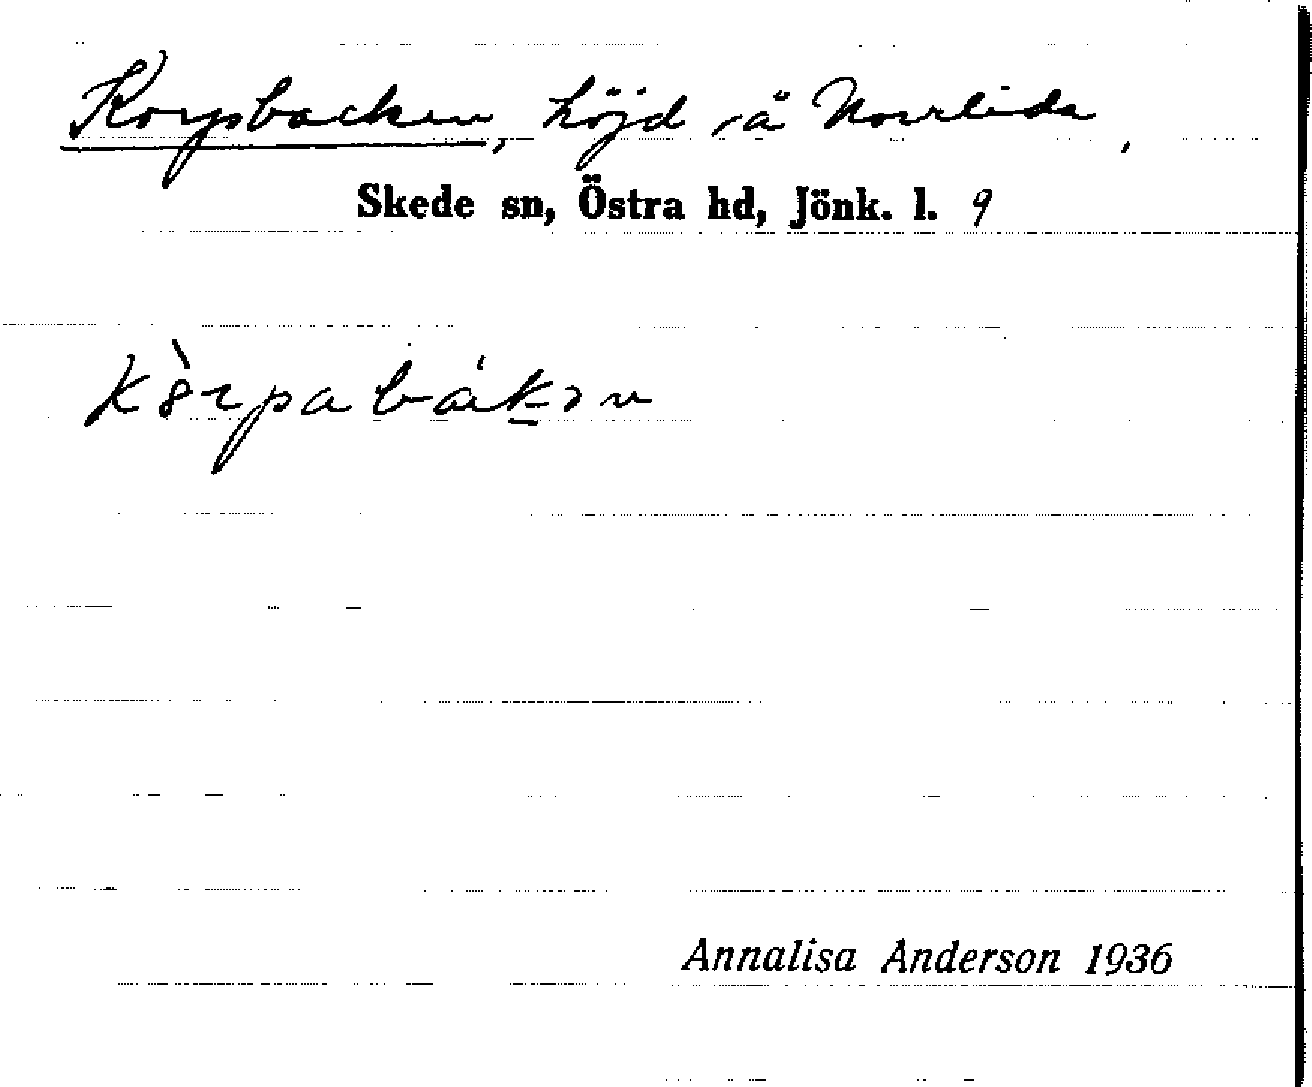 Korpsbacken, höjd, å Norrlida,
Skede sn, Östra hd, Jönk. l. 9
kò̀rpabákən
Annalisa Anderson 1936